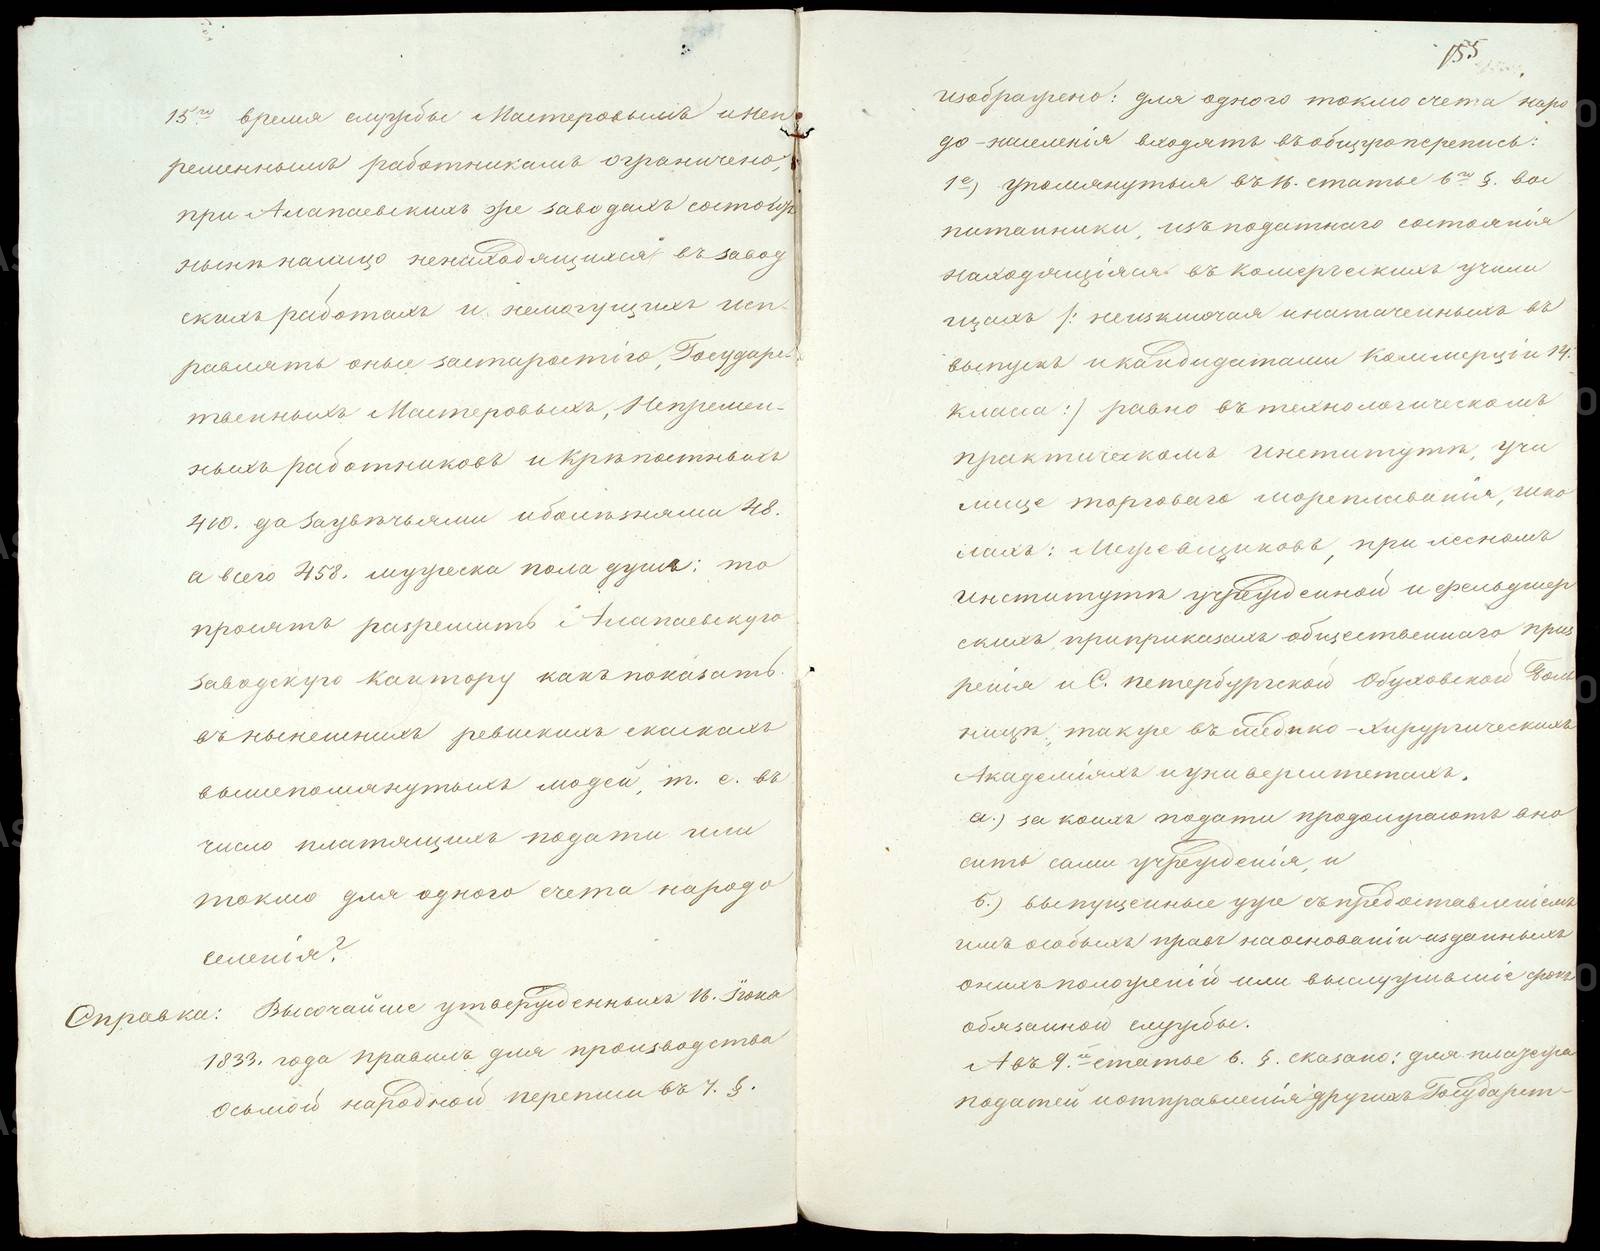 15го время службы Мастеровымъ и неп
ременнымъ работникамъ ограничено,
при Алапаевскихъ же заводахъ состоитъ
нынѣ налицо ненаходящихся въ завод
скихъ работахъ и немогущихъ исп-
равлять оные застаростію, Государс-
твенныхъ Мастеровыхъ, Непремен-
ныхъ работниковъ и Крѣпостныхъ
410. да заувѣчьями иболѣзнями 48.
а всего 458. мужеска пола душъ: то
просятъ разрешить Алапаевскую
заводскую Кантору какъ показать
въ нынешнихъ ревискихъ сказкахъ
вышепомянутыхъ людей, т. е. въ
число платящихъ подати или
токмо для одного счета народо
селенія?
Справка: Высочайше утвержденныхъ 16. Іюня
1833. года правилъ для производства
осьмой народной переписи въ 7. §.
155
изображено: для одного токмо счета наро
до-населенія входятъ въобщуюперепись:
1е) упомянутыя въ 16. статье 6го §. вос
питанники, изъ податнаго состоянія
находящіяся въ Комерческихъ учили
щахъ /: неизключая иназначенныхъ въ
выпускъ и кандидатами Коммерціи 14.
класса :/ равно въ технологическомъ
практическомъ институтѣ, учи
лище торговаго мореплаванія, шко
лахъ: Межевщиковъ, при лесномъ
институтѣ учрежденной и фельдшер
скихъ приприказахъ общественнаго приз
ренія и С. петербургской Обуховской Боль
ницѣ, также въ медико-хирургическихъ
Академіяхъ и университетахъ.
а.) за коихъ подати продолжаютъ вно
сить сами учрежденія, и
б.) выпущенные уже съ предоставленіемъ
имъ особыхъ правъ наоснованіи изданныхъ
онихъ положеній или выслужившіе срокъ
обязанной службы.
А въ 9.й статье 6. §. сказано: для платежа
податей иотправленія другихъ Государст-